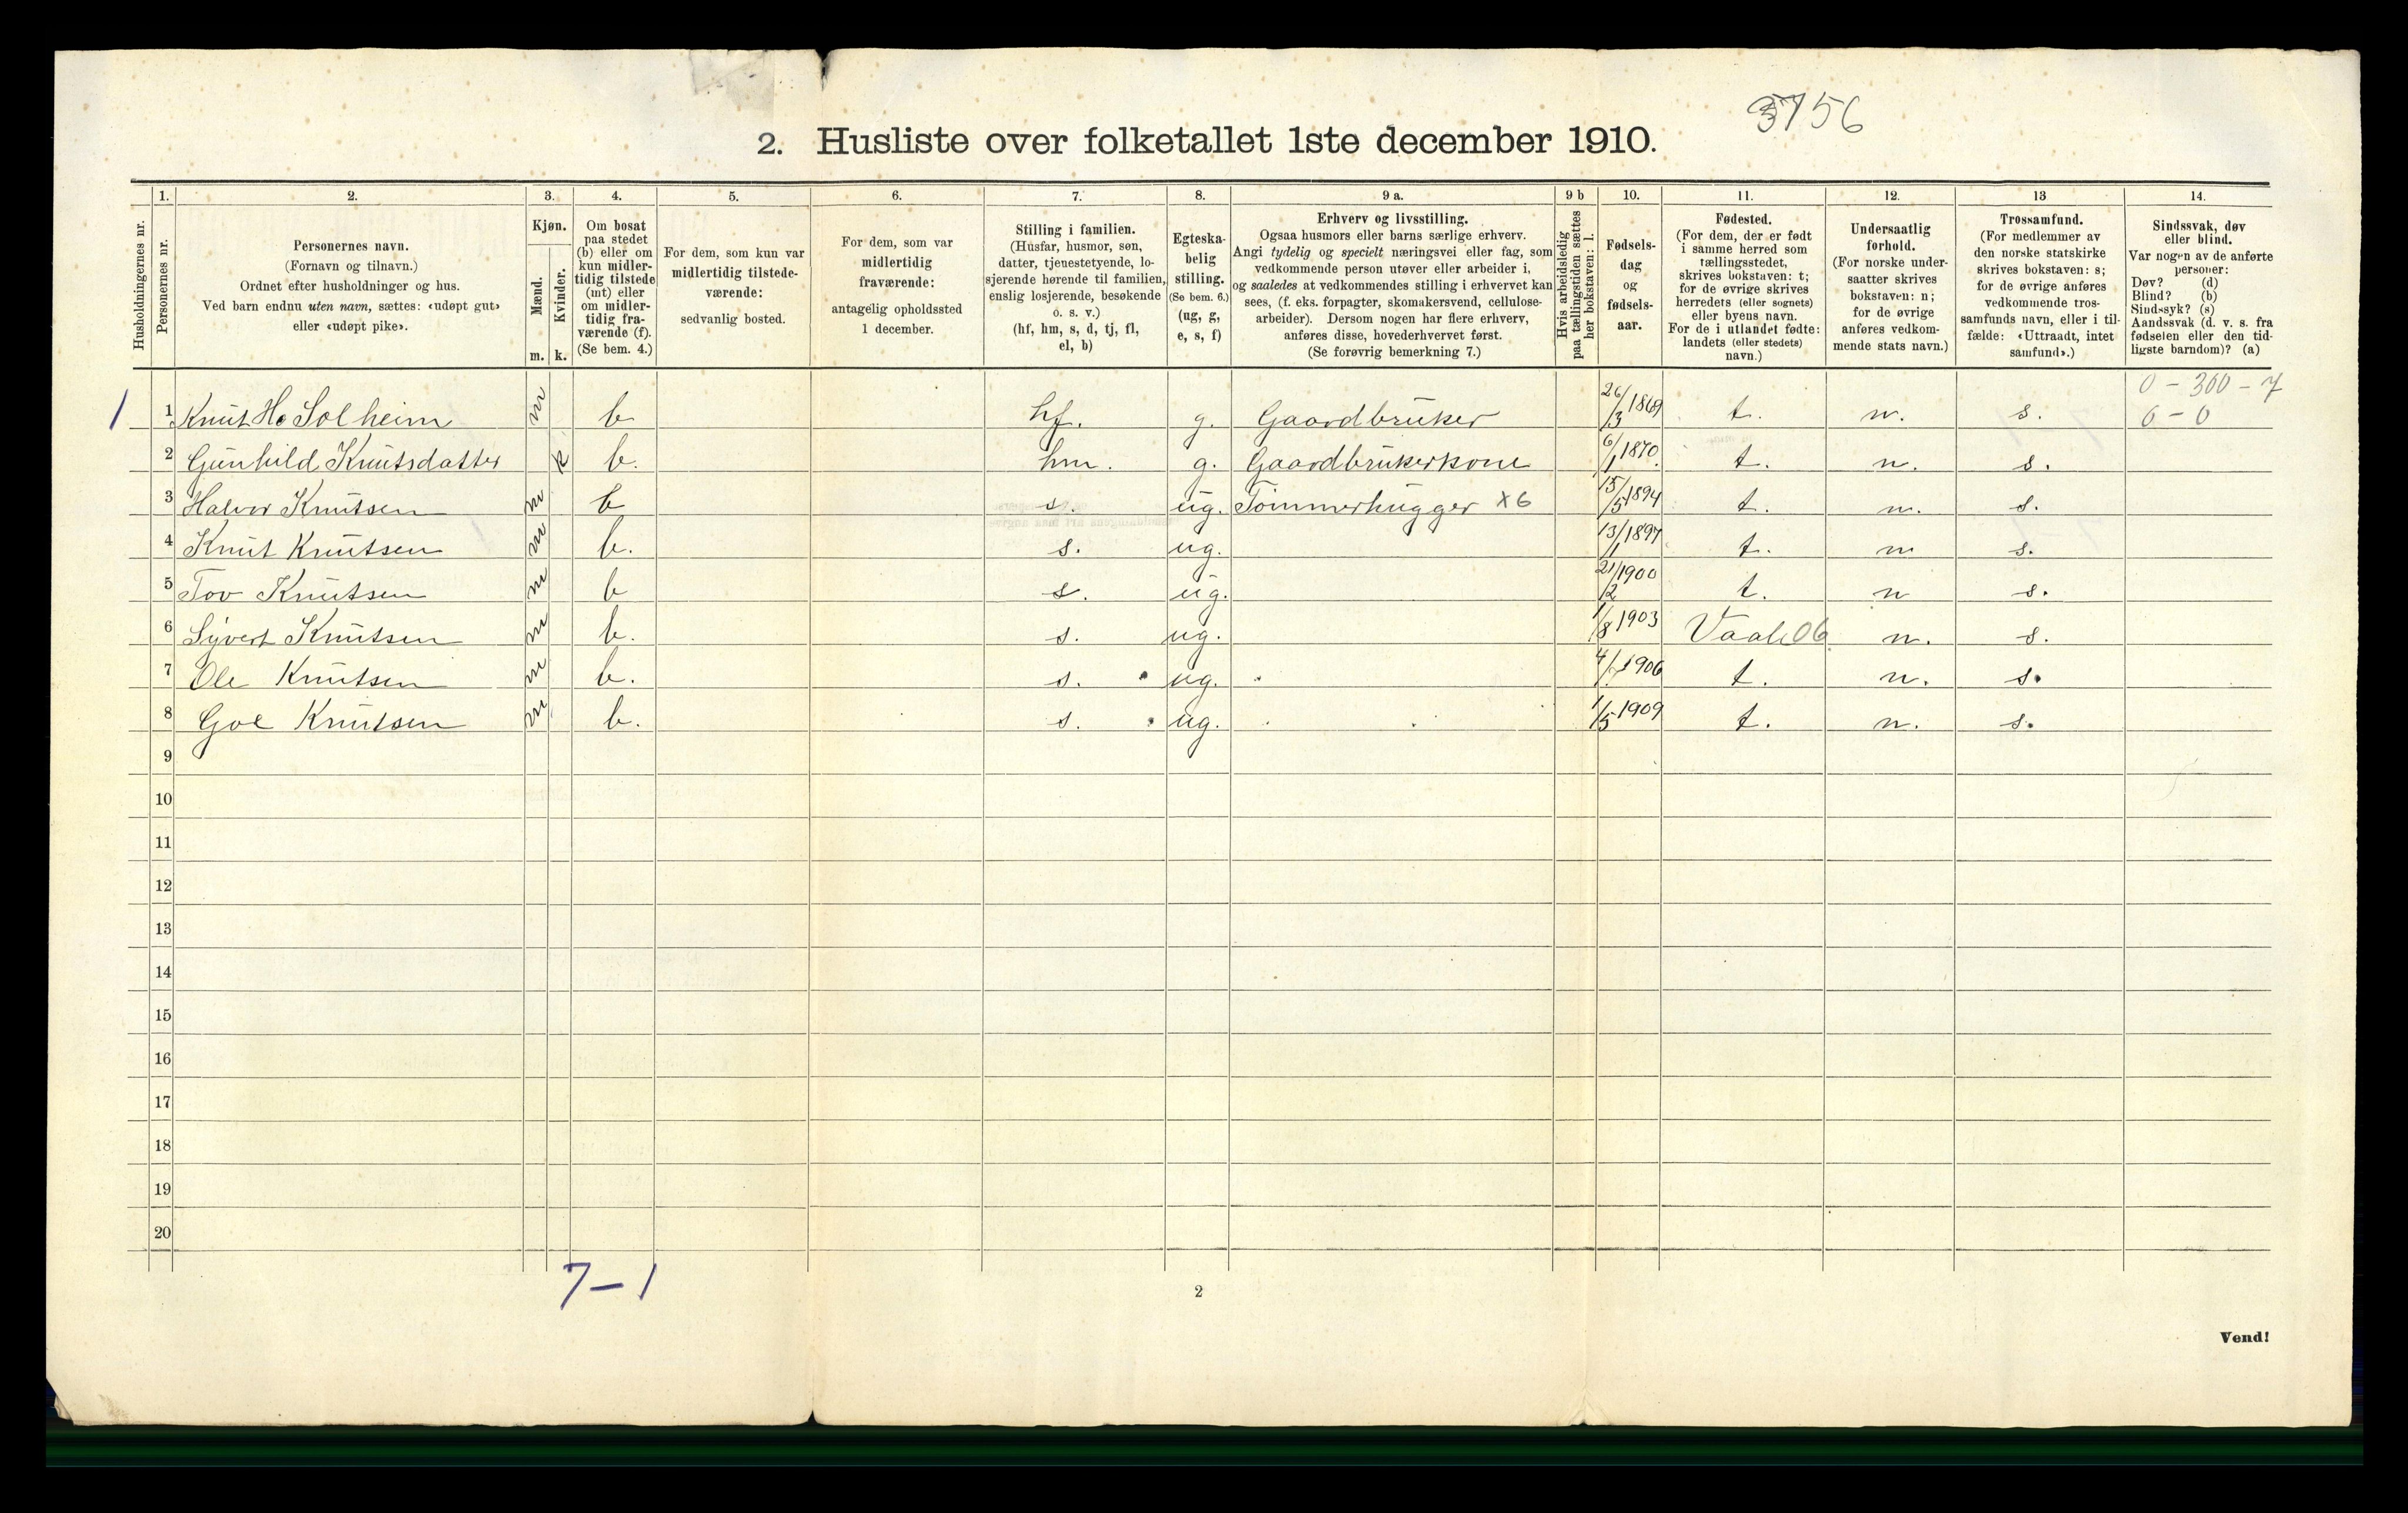 3756
2. Husliste over folketallet 1ste december 1910.
Husholdningernes nr.
1.
Personernes nr.
2.
Personernes navn.
(Fornavn og tilnavn.)
Ordnet efter husholdninger og hus.
Ved barn endnu uten navn, sættes: «udøpt gut»
eller «udøpt pike».
3.
Kjøn.
Mænd.
Kvinder.
m. k.
4.
Om bosat
paa stedet
(b) eller om
kun midler-
tidig tilstede
(mt) eller
om midler-
tidig fra-
værende (f).
(Se bem. 4.)
5.
For dem, som kun var
midlertidig tilstede-
værende:
sedvanlig bosted.
6.
For dem, som var
midlertidig
fraværende:
antagelig opholdssted
1 december.
7.
Stilling i familien.
(Husfar, husmor, søn,
datter, tjenestetyende, lo-
sjerende hørende til familien,
enslig losjerende, besøkende
o. s. v.)
(hf, hm, s, d, tj, fl,
el, b)
8.
Egteska-
belig
stilling.
(Se bem. 6.)
(ug, g,
e, s, f)
9 a.
Erhverv og livsstilling.
Ogsaa husmors eller barns særlige erhverv.
Angi tydelig og specielt næringsvei eller fag, som
vedkommende person utøver eller arbeider i,
og saaledes at vedkommendes stilling i erhvervet kan
sees, (f. eks. forpagter, skomakersvend, cellulose-
arbeider). Dersom nogen har flere erhverv,
anføres disse, hovederhvervet først.
(Se forøvrig bemerkning 7.)
9 b
Hvis arbeidsledig
paa tællingstiden sættes
her bokstaven: l.
10.
Fødsels-
dag
og
fødsels-
aar.
11.
Fødested.
(For dem, der er født
i samme herred som
tællingsstedet,
skrives bokstaven: t;
for de øvrige skrives
herredets (eller sognets)
eller byens navn.
For de i utlandet fødte:
landets (eller stedets)
navn.)
12.
Undersaatlig
forhold.
(For norske under-
saatter skrives
bokstaven: n;
for de øvrige
anføres vedkom-
mende stats navn.)
13
Trossamfund.
(For medlemmer av
den norske statskirke
skrives bokstaven: s;
for de øvrige anføres
vedkommende tros-
samfunds navn, eller i til-
fælde: «Uttraadt, intet
samfund».)
14.
Sindssvak, døv
eller blind.
Var nogen av de anførte
personer:
Døv? (d)
Blind? (b)
Sindssyk? (s)
Aandssvak (d. v. s. fra
fødselen eller den tid-
ligste barndom)? (a)
0 - 300 - 7
1 1 Knut H. Solheim m b hf. g. Gaardbruker 26/3 1869 t. n. s. 0 - 0
2 Gunhild Knutsdatter k b. hm. g. Gaardbrukerkone 6/1 1870. t. n. s.
3 Halvor Knutsen m b s. ug. Tømmerhugger x6 15/5 1894 t. n. s.
4 Knut Knutsen m b. s. ug. 13/1 1897 t. n s.
5 Tov Knutsen m b s. ug. 21/2 1900 t. n s.
6 Syvert Knutsen m b. s. ug. 1/8 1903 n. s.
7 Ole Knutsen m b. s. ug. 1906 t. n. s.
8 Knutsen m b. s. ug. 1/5 1909 t. n. s.
9
10
11
12
13
14
15
16
17
18
19
20
7-1
2
Vend!